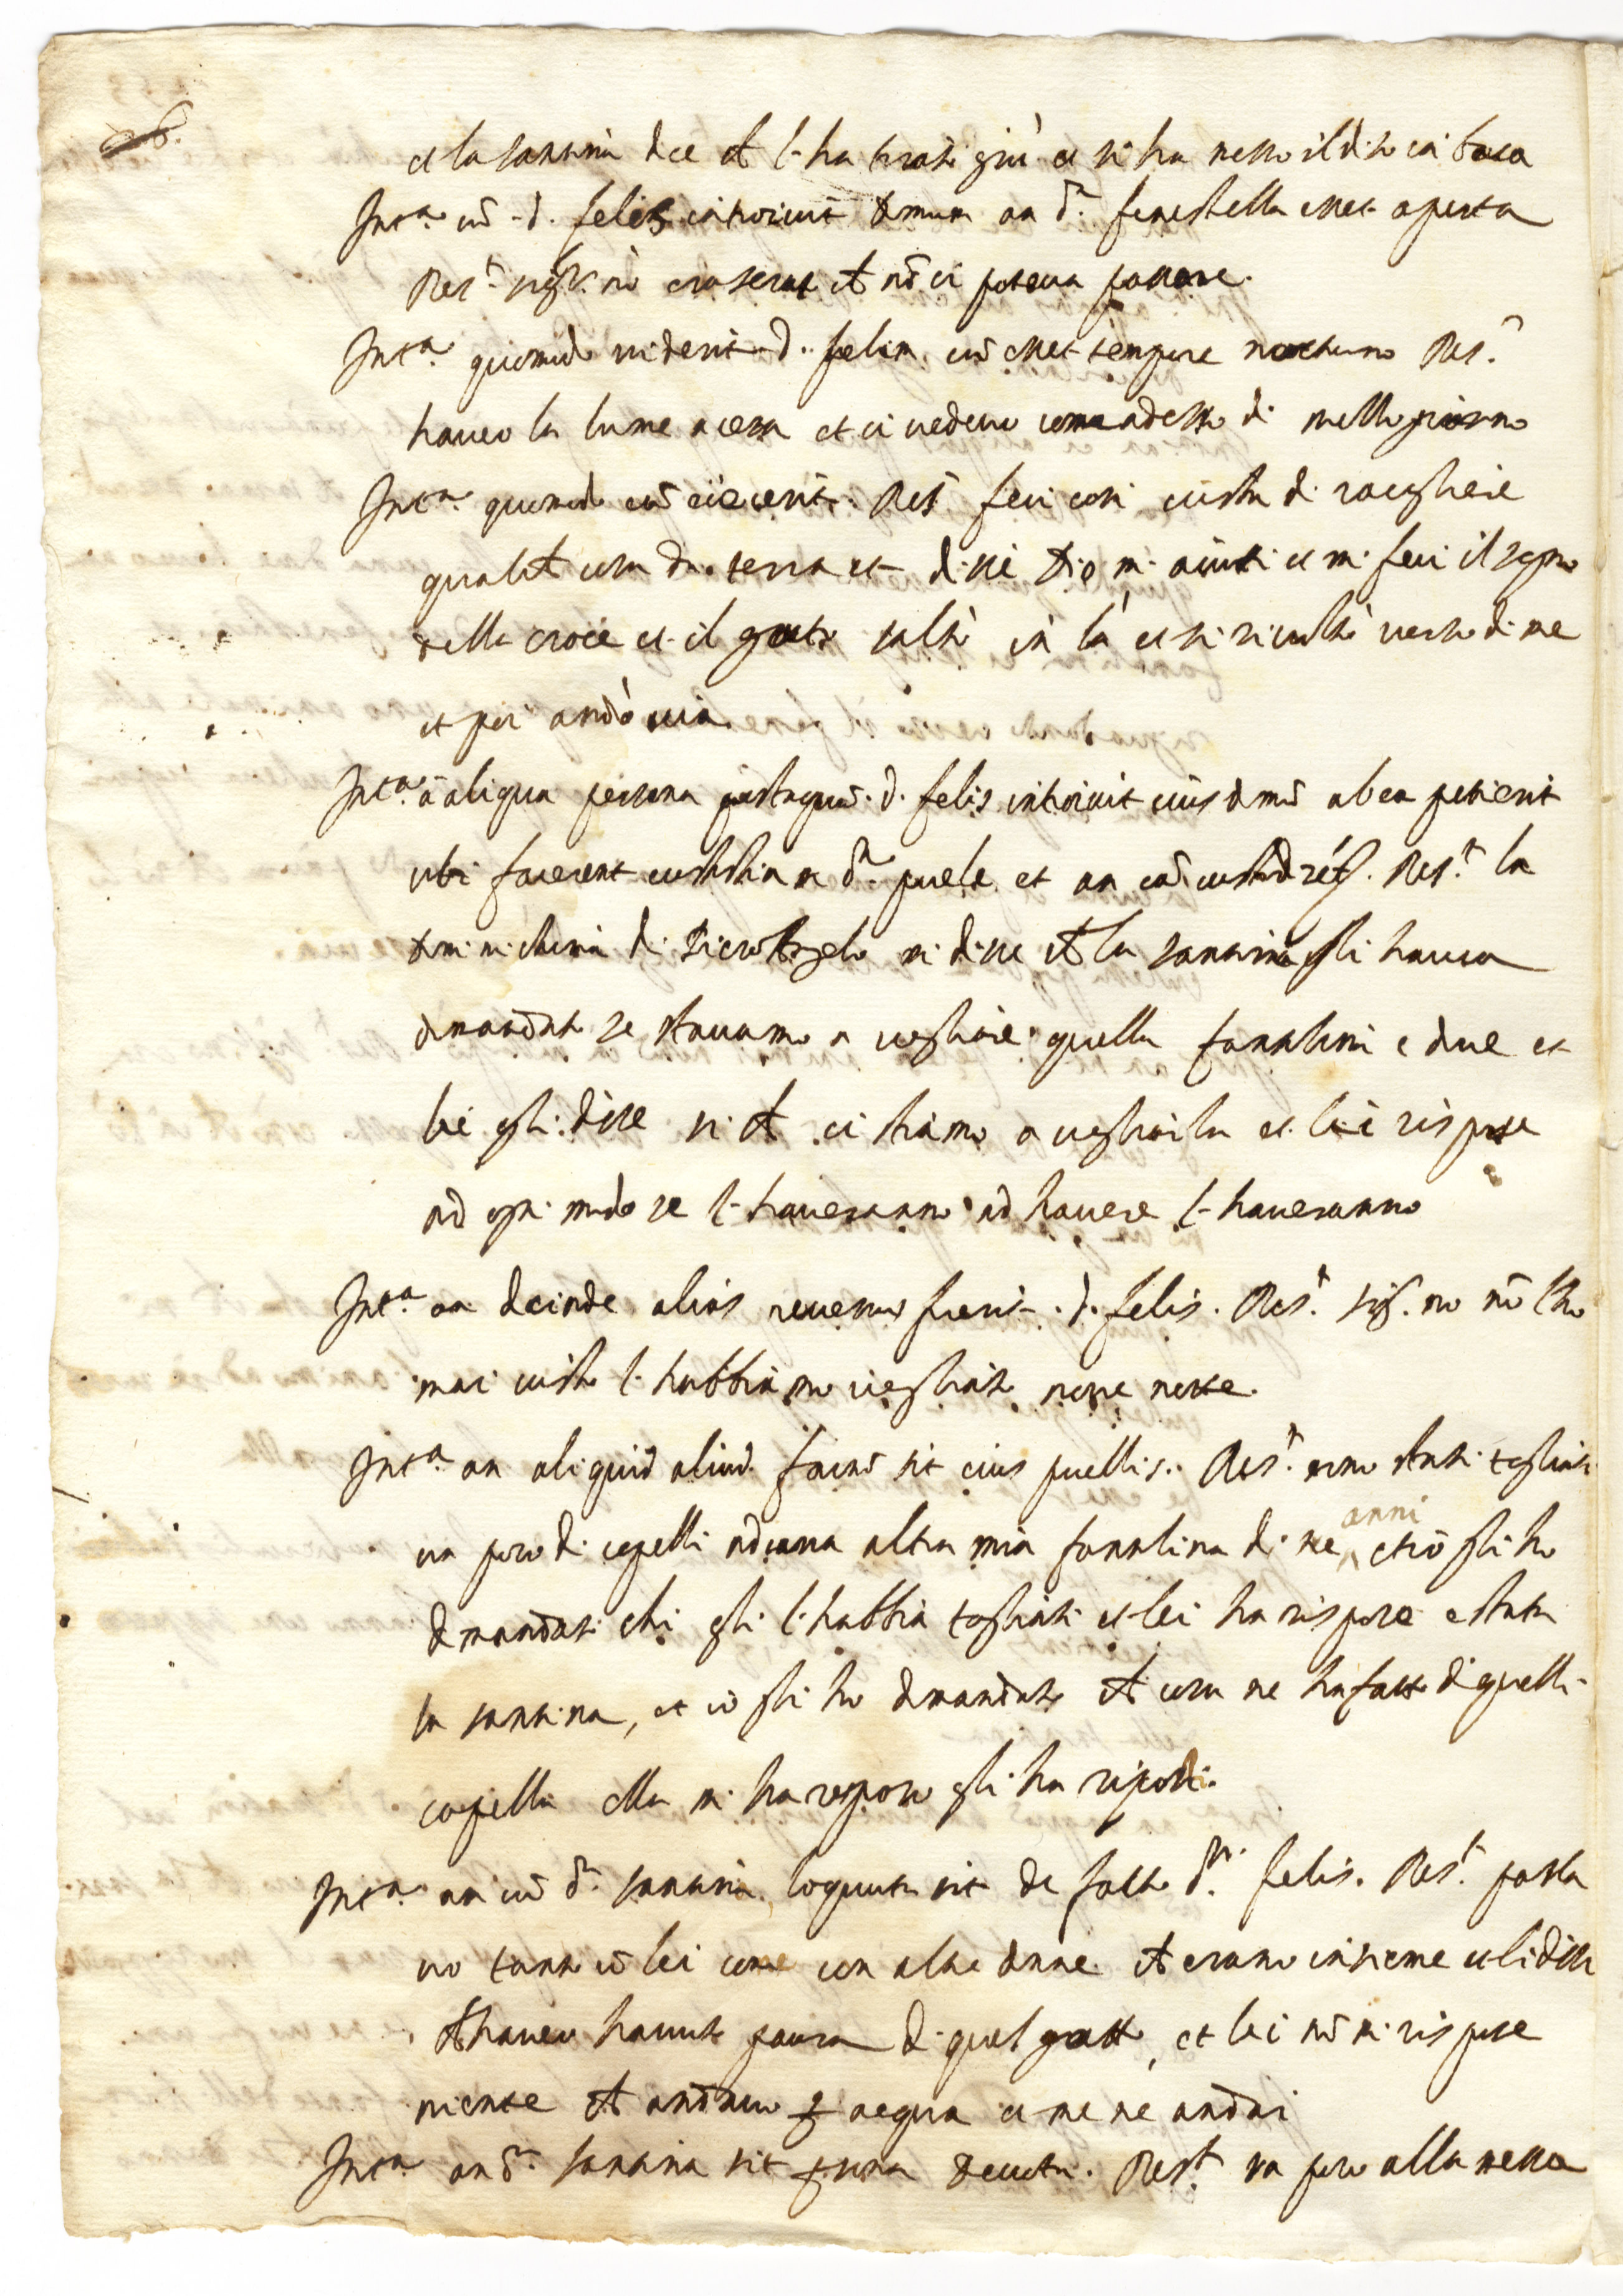 et la santina dce ch l'ha tirato giù et si ha messo il dito in boca
Int.a cũ d. felis introivit domum an d.a fenestella esset aperta
Res.t sig.r nò era serat ch nõ ci poteva passare.
Int.a quomodo viderit d. felem cũ esset tempore nocturno Res.t
havevo la lume acesa et ci vedevo come adesso di mezzo giorno
Int.a quomodo eũ eiecerit. Res.t feci cosi vista di racogliere
qualch cosa da terra et dissi Dio mi aiuti et mi feci il segno
della croce et il gatto saltò in là et si rivoltò verso di me
et poi andò via
Int.a ã aliqua persona postquã d. felis introivit eius domũ ab ea petierit
ubi facerent custodiam d.a puele et an eã custodirẽt. Res.t la
Dominichina di Piero Angelo mi disse ch la santina gli haveva
domandato se stavamo a vegliare quella fantolina e due et
lei gli disse si ch ci stiamo a vegliarla et lei rispose
ad ogni modo se l'haveranno ad havere l'haveranno
Int.a an deinde alias reversus fuerit d. felis. Res.t sig.r no nõ l'ho
mai visto l'habbiamo vegliato nove notte.
Int.a an aliquid aliud factũ sit eius puellis. Res.t sono stati tagliati
un poco di capelli ad una altra mia fantolina di sei anni et io gli ho
domandato chi gli l'habbia tagliati et lei ha risposo è stata
la santina, et io gli ho domandato ch cosa ne ha fatto di quelli
capelli ella mi ha risposo gli ha riposti.
Int.a an cũ d.a santina loquuta sit de facto d.i felis. Res.t parla
vo tanto cõ lei come con altre donne ch erano insieme et li dissi
ch havevo havuto paura di quel gatto, et lei nõ mi rispose
niente ch andavo p aequa et me ne andai
Int.a an d.a santina sit fœmina devota. Res.t va poco alla messa